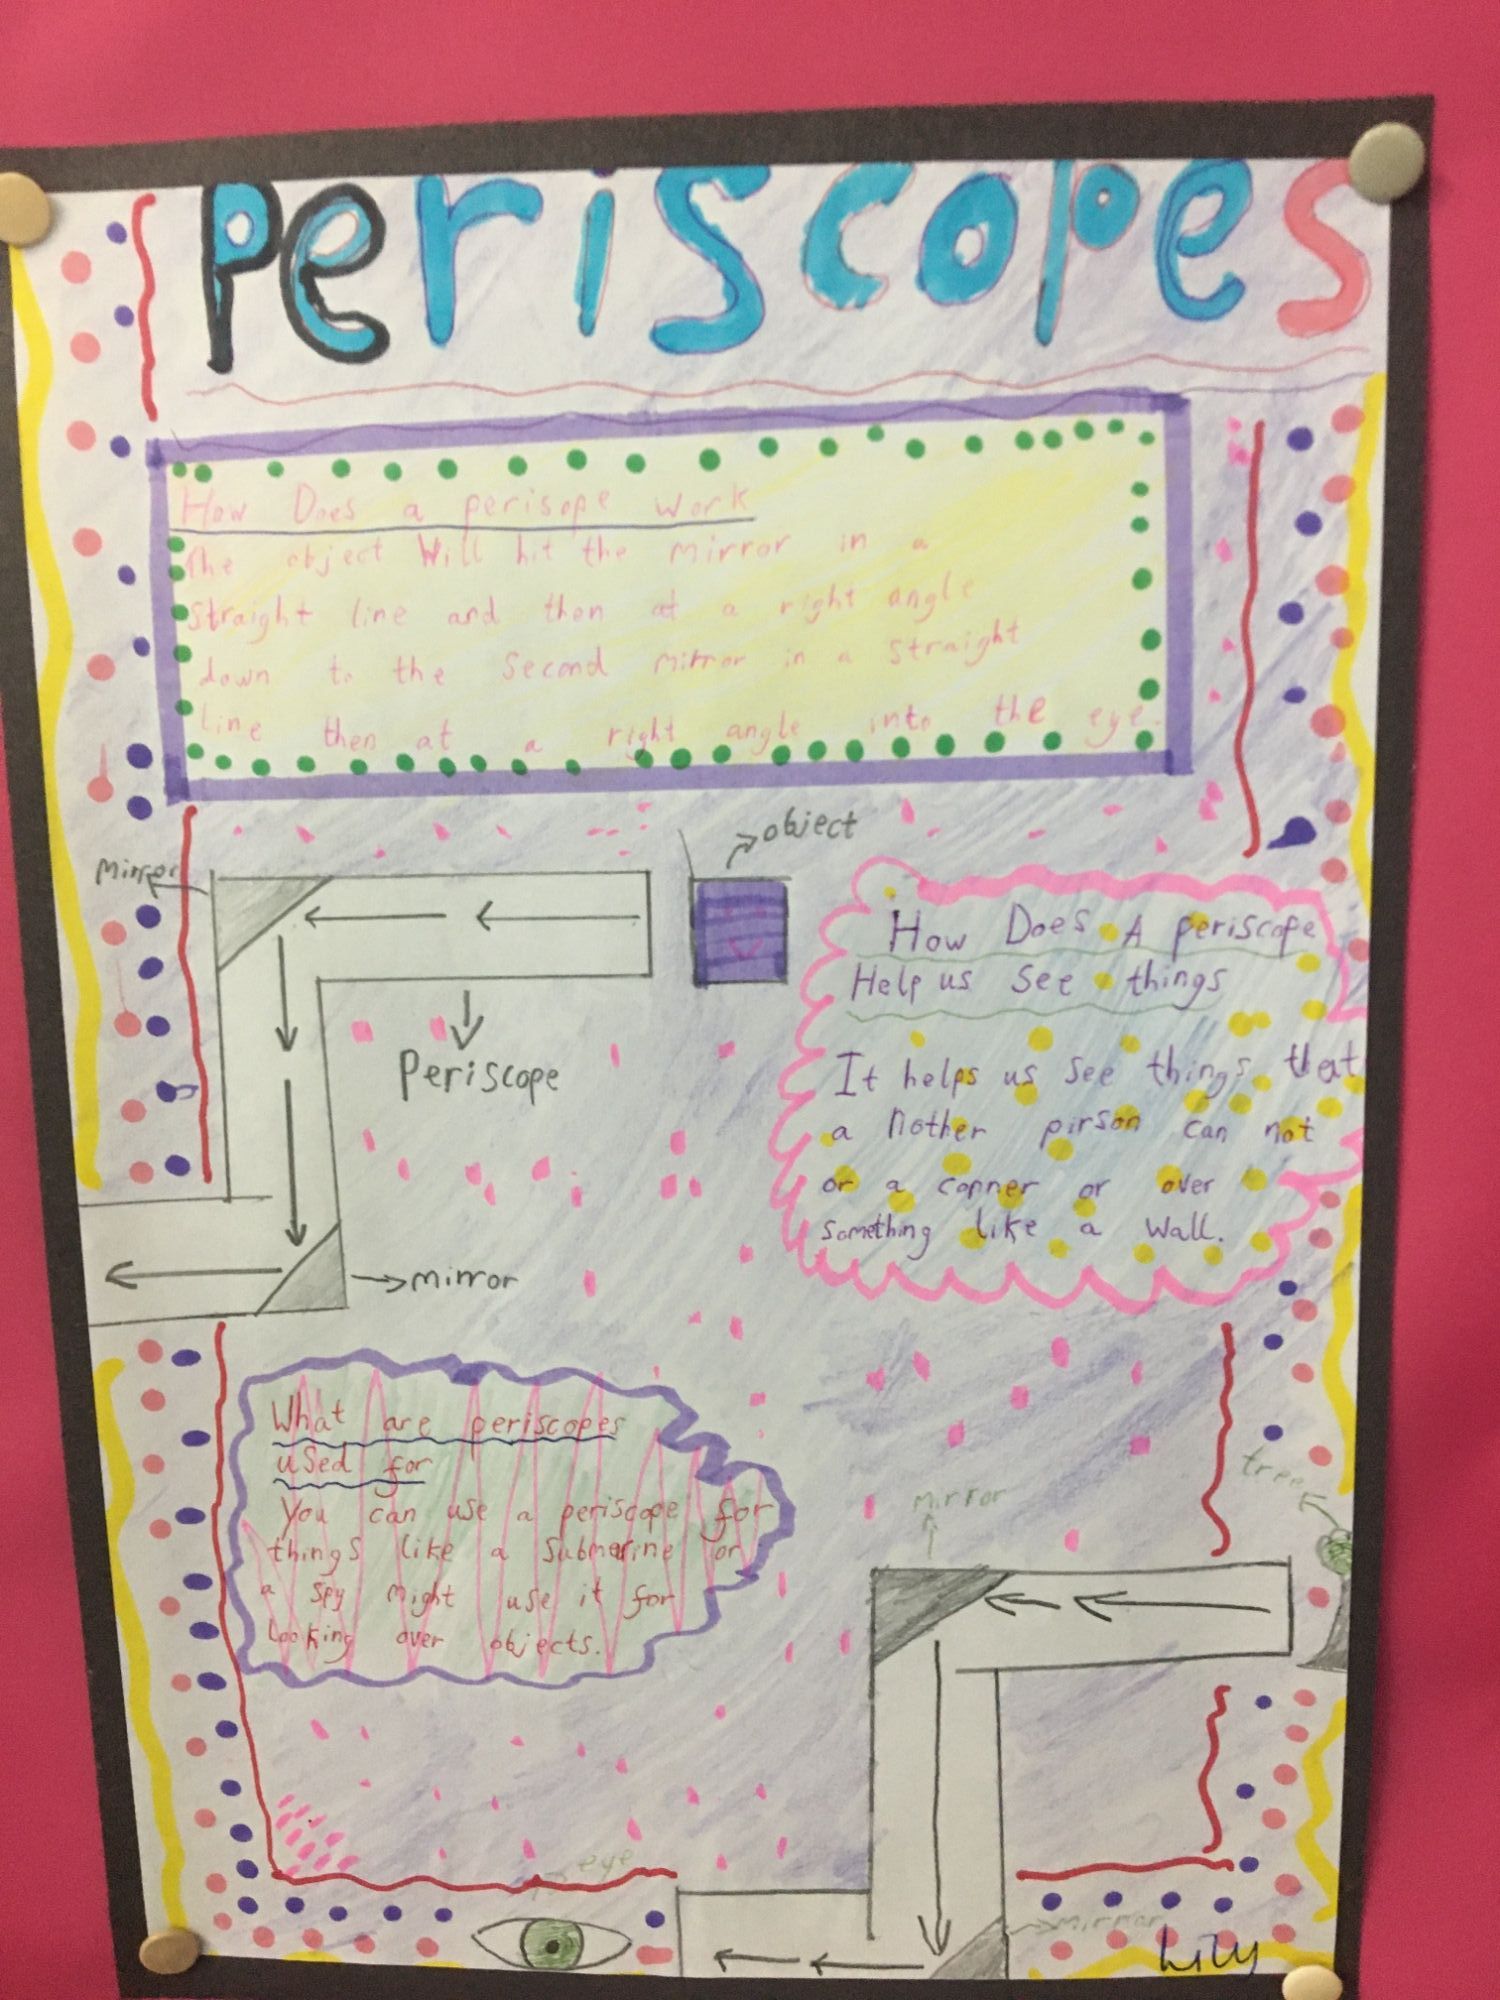 Periscopes
How Does a perisope work
The object Will hit the mirror in a
straight line and then at a right angle
down to the second mirror in a straight
line then at a right angle into the eye.
object
mirror
Periscope
mirror
How Does A periscope
Help us see things
It helps us see things that
a nother pirson can not
or a conner or over
something like a wall.
What are periscopes
used for
You can use a periscope for
things like a submarine or
a spy might use it for
Looking over objects.
tree
mirror
eye
mirror
Lily